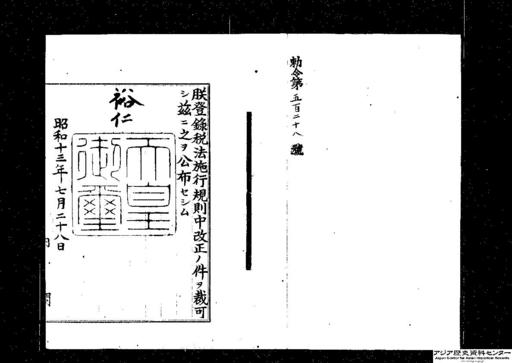 勅令第五百二十八號
朕登錄税法施行規則中改正ノ件ヲ裁可
シ茲ニ之ヲ公布セシム
裕仁
天皇御璽
昭和十三年七月二十八日
内閣
アジア歴史資料センター
Japan Center for Asian Historical Records